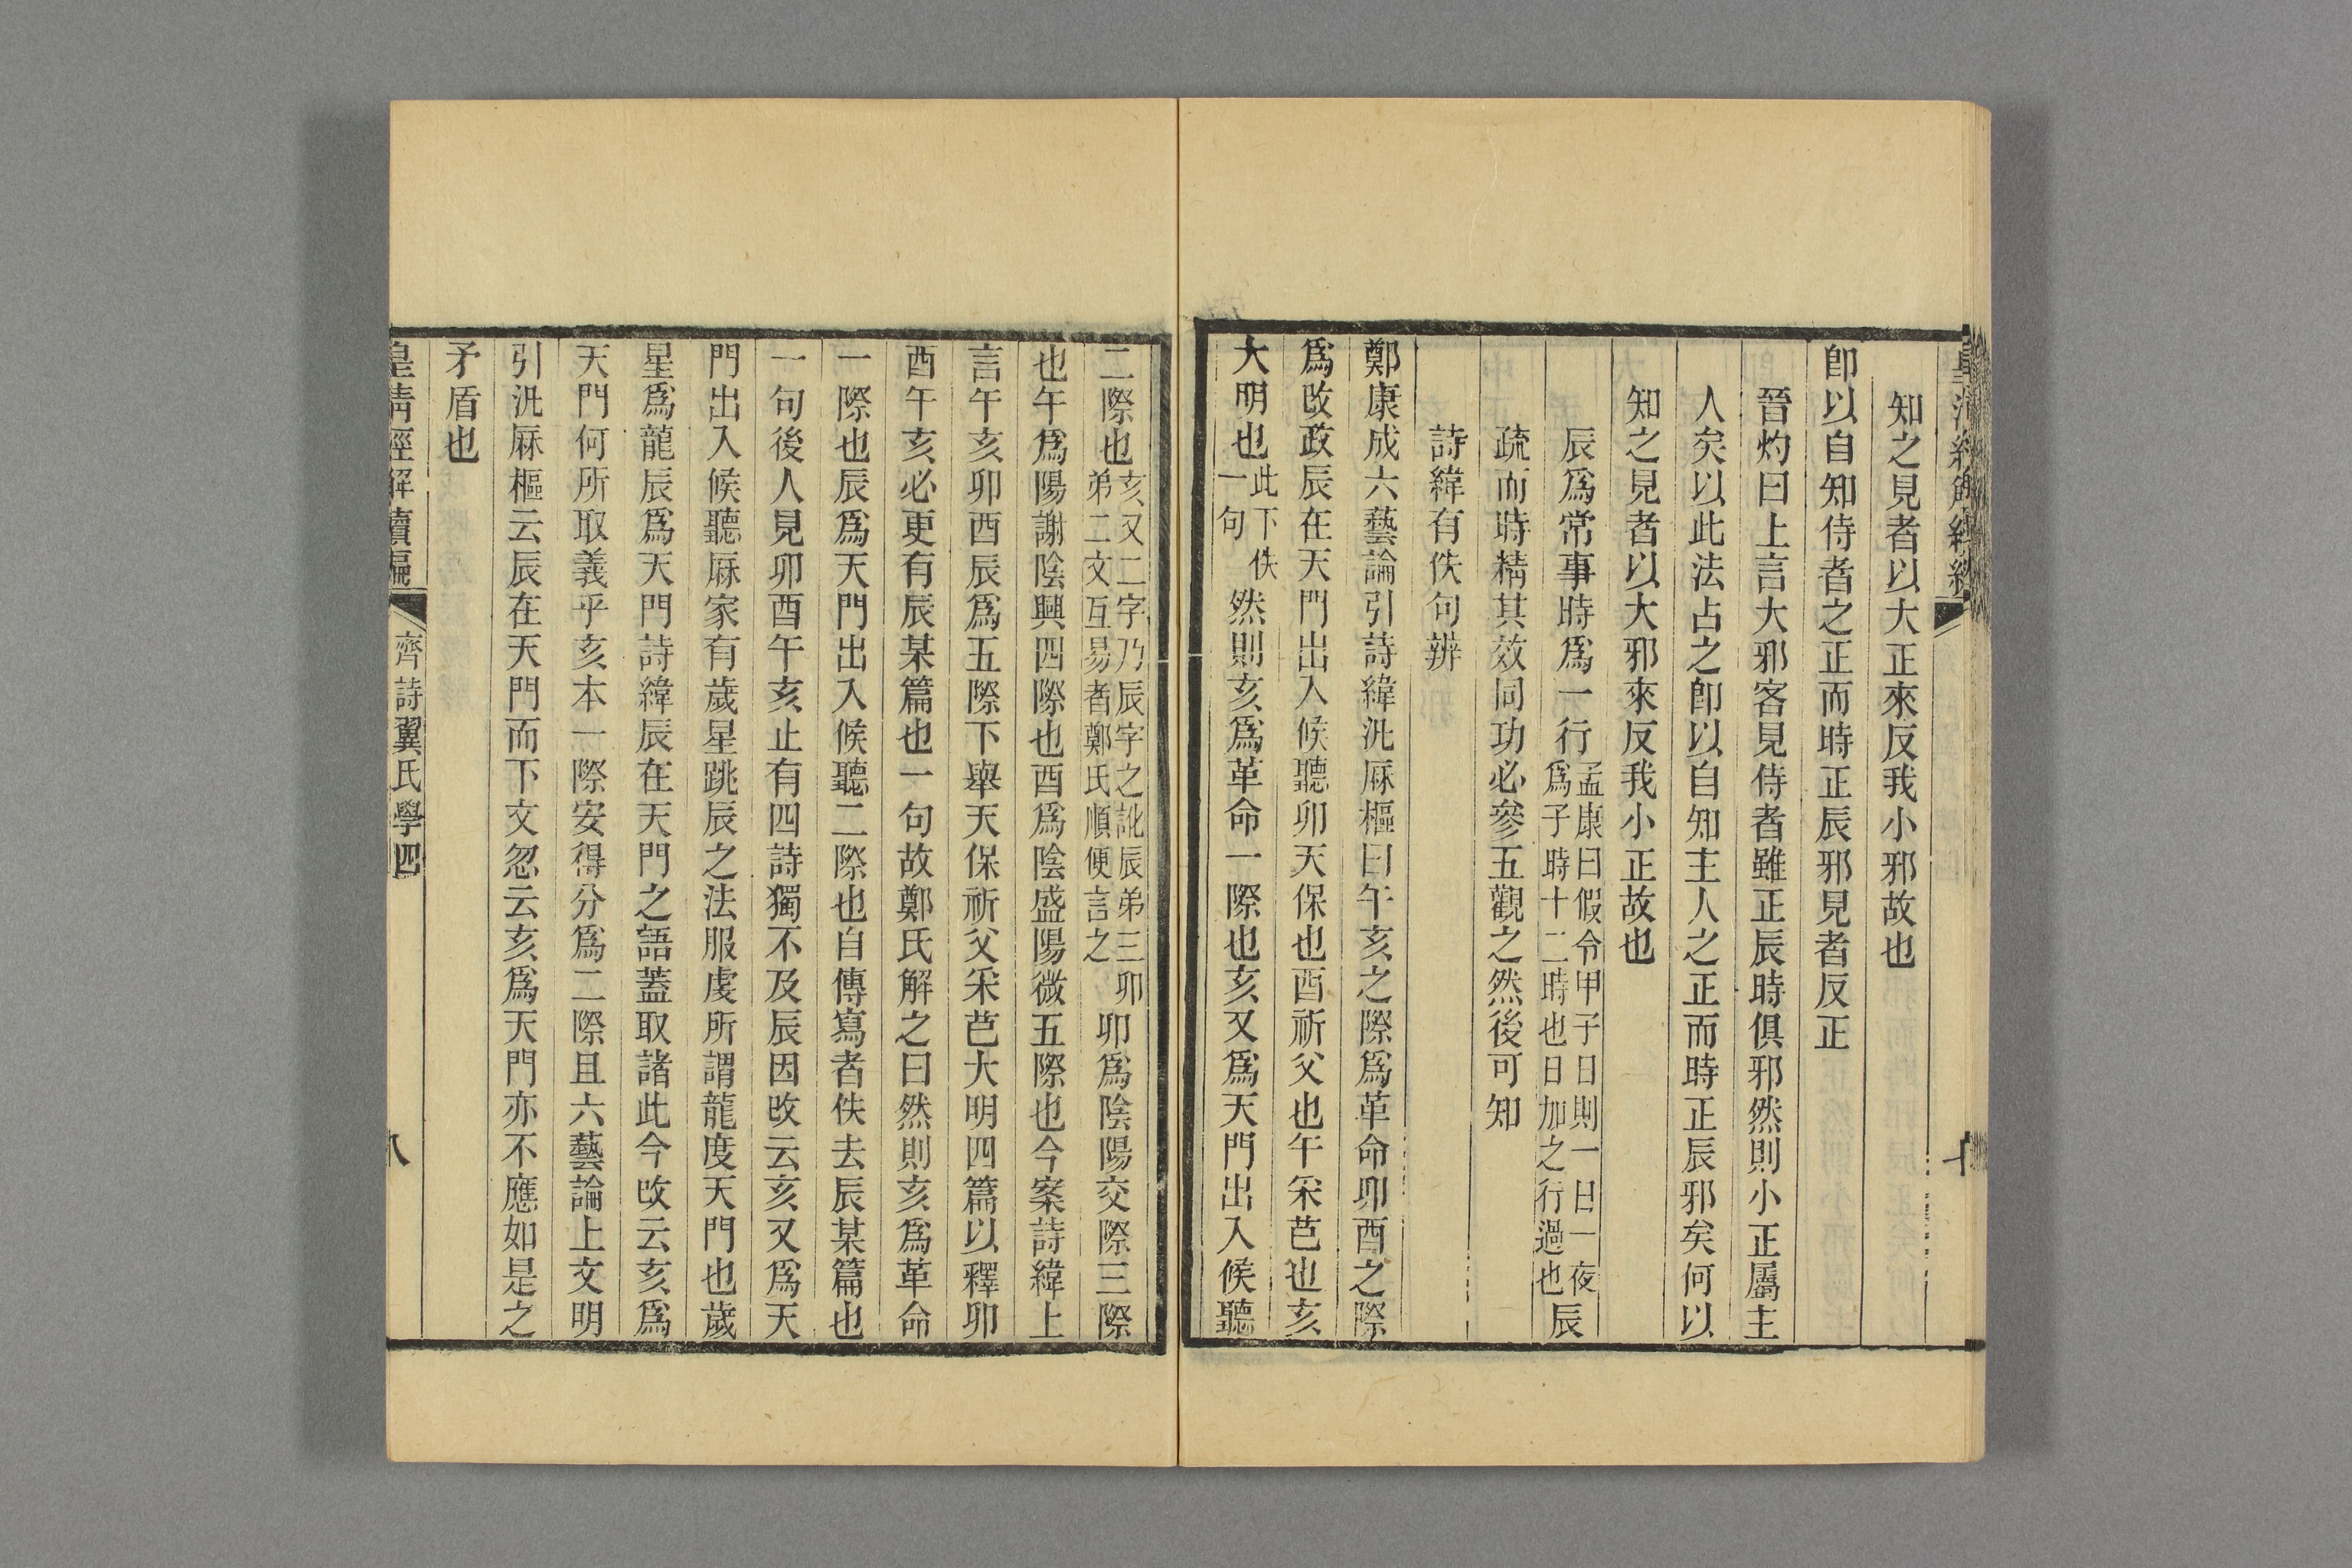 知之見者以大正來反我小邪故也
卽以自知侍者之正而時正辰邪見者反正
晉灼曰上言大邪客見侍者雖正辰時俱邪然則小正屬主
人矣以此法占之卽以自知主人之正而時正辰邪矣何以
知之見者以大邪來反我小正故也
辰爲常事時爲一行孟康曰假令甲子日則一日一夜爲子時十二時也日加之行過也辰
疏而時精其效同功必參五觀之然後可知
詩緯有佚句辨
鄭康成六藝論引詩緯汎厤樞曰午亥之際爲革命卯酉之際
爲改政辰在天門出入候聽卯天保也酉祈父也午采芑也亥
大明也此下佚一句然則亥爲革命一際也亥又爲天門出入候聽
二際也亥又二字乃辰字之訛辰弟三卯弟二文互易者鄭氏順便言之卯爲陰陽交際三際
也午爲陽謝陰興四際也酉爲陰盛陽微五際也今案詩緯上
言午亥卯酉辰爲五際下舉天保祈父采芑大明四篇以釋卯
酉午亥必更有辰某篇也一句故鄭氏解之曰然則亥爲革命
一際也辰爲天門出入候聽二際也自傳寫者佚去辰某篇也
一句後人見卯酉午亥止有四詩獨不及辰因改云亥又爲天
門出入候聽厤家有歲星跳辰之法服虔所謂龍度天門也歲
星爲龍辰爲天門詩緯辰在天門之語蓋取諸此今改云亥爲
天門何所取義乎亥本一際安得分爲二際且六藝論上文明
引汎厤樞云辰在天門而下文忽云亥爲天門亦不應如是之
矛盾也
皇清經解續編
齊詩翼氏學四
八